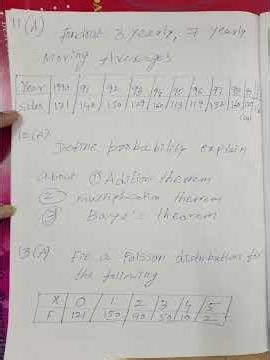 11 (A) Findout 3 yearly, 7 yearly
Moving Averages
Year 1990 91 92 93 94 95 96 97
Sales 121 142 150 129 160
12 (A)
Define probability explain
about ① Adition theorem
② multiplication theorem
③ Baye's theorem
13 (A) Fit a Poisson distribution for
the following
X 0 1 2 3 4 5
F 121 150 90 50 10